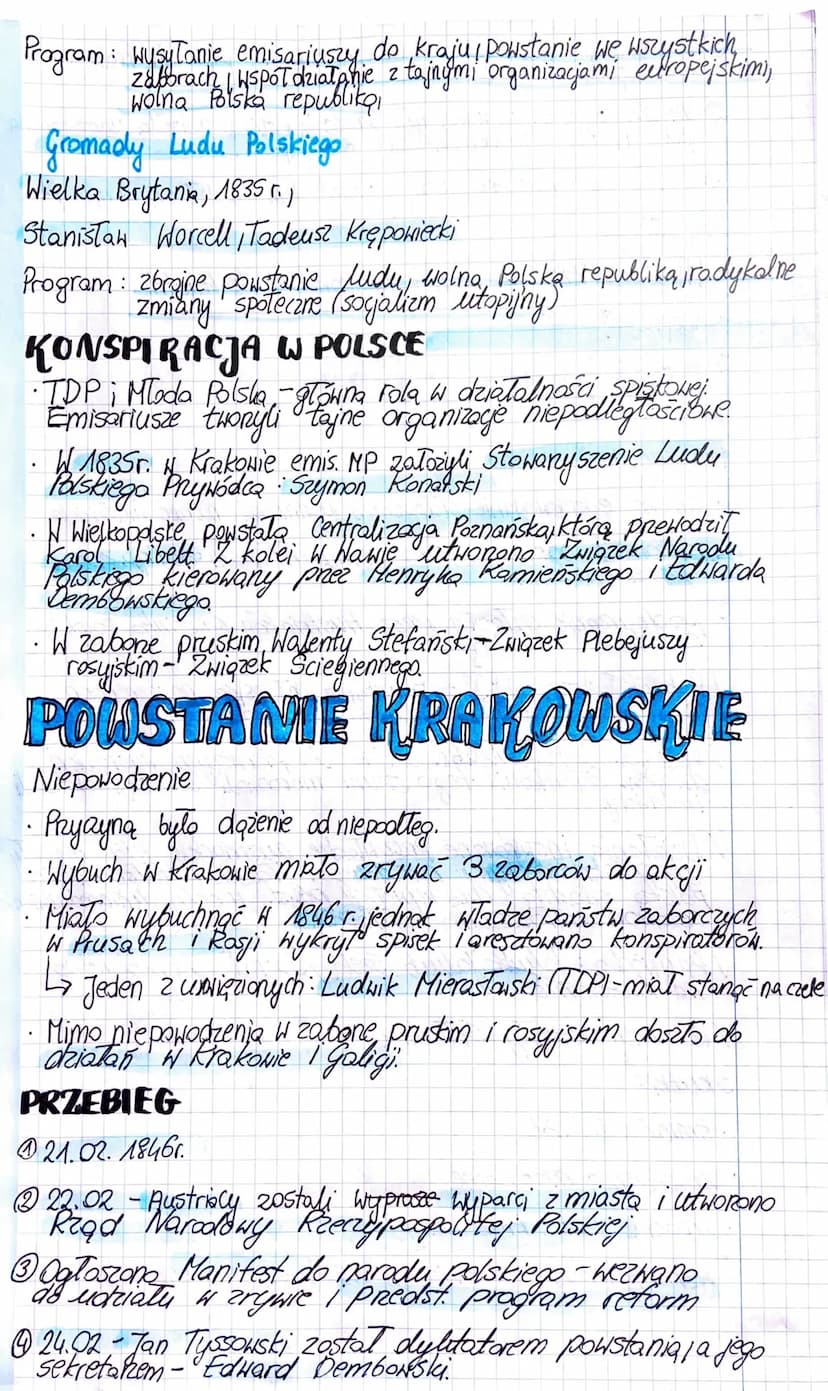 Program: wysyłanie emisariuszy do kraju, powstanie we wszystkich
zaborach, współdziałanie z tajnymi organizacjami europejskimi,
wolna Polska republiką,
Gromady Ludu Polskiego
Wielka Brytania, 1835 r.,
Stanisław Worcell, Tadeusz Krępowiecki
Program: zbrojne powstanie ludu, wolna Polska republiką, radykalne
zmiany społeczne (socjalizm utopijny)
KONSPIRACJA W POLSCE
· TDP i Młoda Polska - główna rola w działalności spiskowej.
Emisariusze tworzyli tajne organizacje niepodległościowe.
· W 1835r. w Krakowie emis. MP założyli Stowarzyszenie Ludu
Polskiego Przywódca: Szymon Konarski
· W Wielkopolsce powstała Centralizacja Poznańska, którą przewodził
Karol Libelt. Z kolei w Wawie utworzono Związek Narodu
Polskiego kierowany przez Henryka Kamieńskiego i Edwarda
Dembowskiego.
· W zaborze pruskim Walenty Stefański - Związek Plebejuszy
rosyjskim - Związek Ściegiennego.
POWSTANIE KRAKOWSKIE
Niepowodzenie
· Przyczyną było dążenie od niepodłeg.
· Wybuch w Krakowie miało zrywać 3 zaborców do akcji
· Miało wybuchnąć w 1846 r. jednak władze państw zaborczych
w Prusach i Rosji wykryły spisek i aresztowano konspiratorów.
↳ Jeden z uwięzionych: Ludwik Mierosławski (TDP) - miał stanąć na czele
· Mimo niepowodzenia w zaborze pruskim i rosyjskim doszło do
działań w Krakowie i Galicji.
PRZEBIEG
① 21.02. 1846r.
② 22.02 - Austriacy zostali wyprose wyparci z miasta i utworono
Rząd Narodowy Rzeczypospolitej Polskiej
③ Ogłoszono Manifest do narodu polskiego - wezwano
do udziału w zrywie i przedst. program reform
④ 24.02 - Jan Tyssowski został dyktatorem powstania, a jego
sekretarzem - Edward Dembowski.